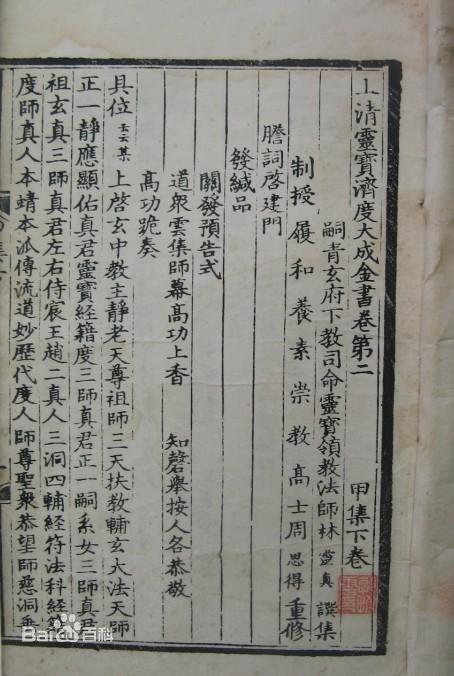 上清靈寶濟度大成金書卷第二　甲集下卷
嗣青玄府下教司命靈寶領教法師林靈真譔集
制授履和養素崇教高士周思得重修
謄詞啓建門
發緘品
關發預告式
道衆雲集師幕高功上香　知磬舉按人各恭敬
高功跪奏
具位某上啓玄中教主靜老天尊祖師三天扶教輔玄大法天師
正一靜應顯佑真君靈寶經籍度三師真君正一嗣系女三師真君
祖玄真三師真君左右侍宸王趙二真人三洞四輔經符法科經籍
度師真人本靖本派傳流道妙歷代度人師尊聖衆恭望師慈洞垂
Baidu百科